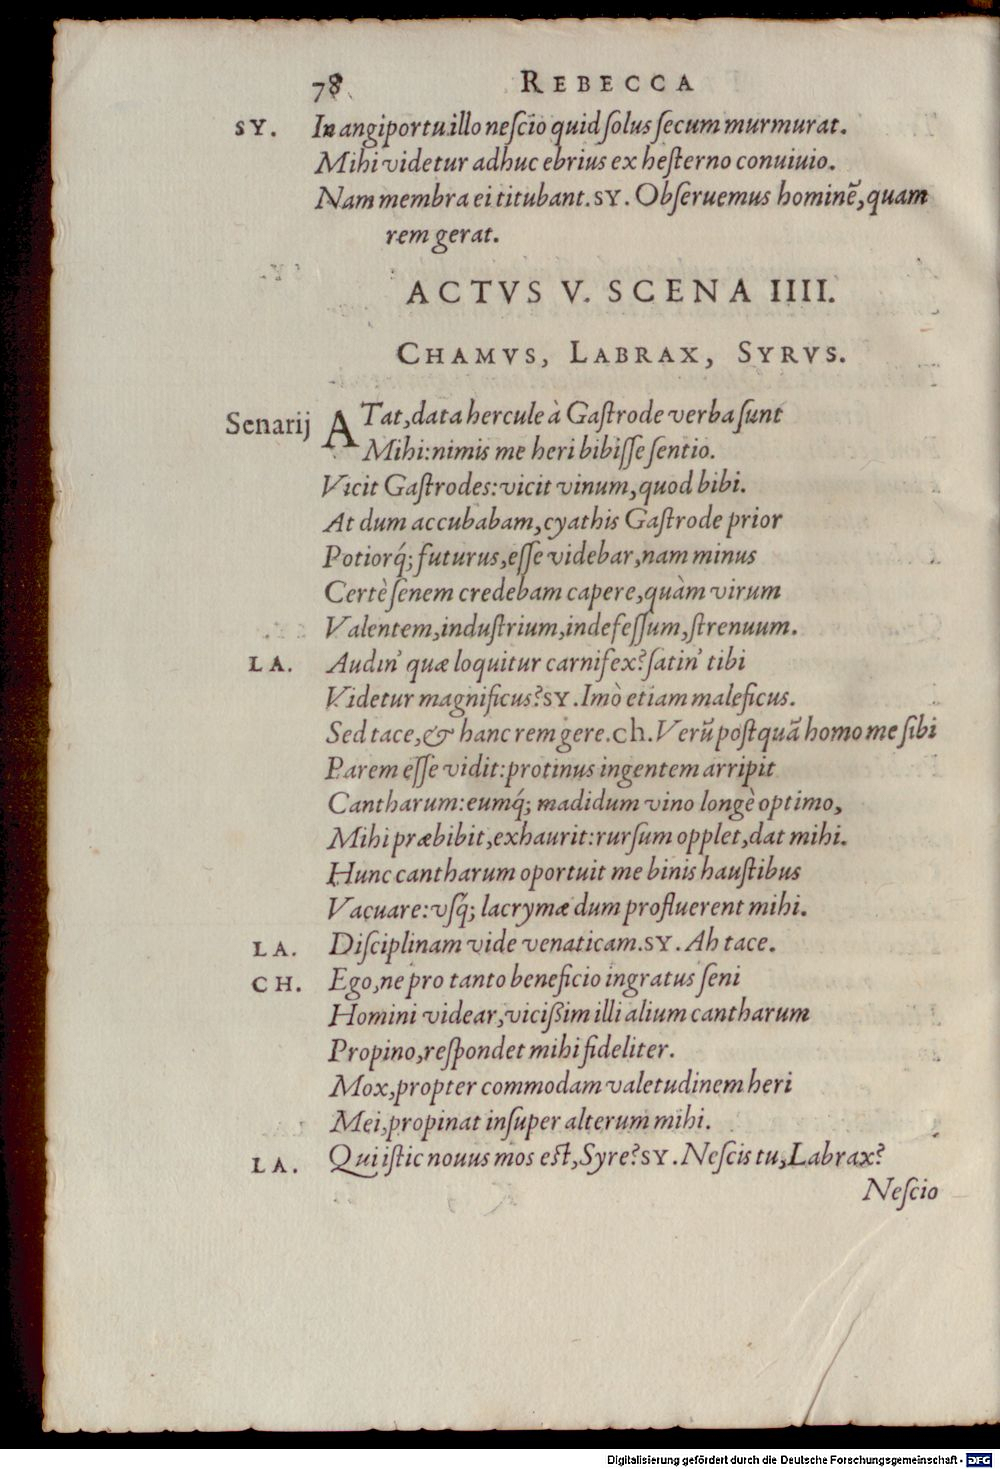 78 REBECCA
SY. In angiportu illo neſcio quid ſolus ſecum murmurat.
Mihi videtur adhuc ebrius ex heſterno conuiuio.
Nam membra ei titubant. SY. Obſeruemus hominẽ, quam
rem gerat.
ACTVS V. SCENA IIII.
CHAMVS, LABRAX, SYRVS.
Senarij ATat, data hercule à Gaſtrode verba ſunt
Mihi: nimis me heri bibiſſe ſentio.
Vicit Gaſtrodes: vicit vinum, quod bibi.
At dum accubabam, cyathis Gaſtrode prior
Potiorq́; futurus, eſſe videbar, nam minus
Certè ſenem credebam capere, quàm virum
Valentem, induſtrium, indefeſſum, ſtrenuum.
LA. Audin' quæ loquitur carnifex? ſatin' tibi
Videtur magnificus? SY. Imò etiam maleficus.
Sed tace, & hanc rem gere. ch. Verũ poſtquã homo me ſibi
Parem eſſe vidit: protinus ingentem arripit
Cantharum: eumq́; madidum vino longè optimo,
Mihi præbibit, exhaurit: rurſum opplet, dat mihi.
Hunc cantharum oportuit me binis hauſtibus
Vacuare: vſq́; lacrymæ dum profluerent mihi.
LA. Diſciplinam vide venaticam. SY. Ah tace.
CH. Ego, ne pro tanto beneficio ingratus ſeni
Homini videar, vicißim illi alium cantharum
Propino, reſpondet mihi fideliter.
Mox, propter commodam valetudinem heri
Mei, propinat inſuper alterum mihi.
LA. Qui iſtic nouus mos eſt, Syre? SY. Neſcis tu, Labrax?
Neſcio
Digitalisierung gefördert durch die Deutsche Forschungsgemeinschaft - DFG